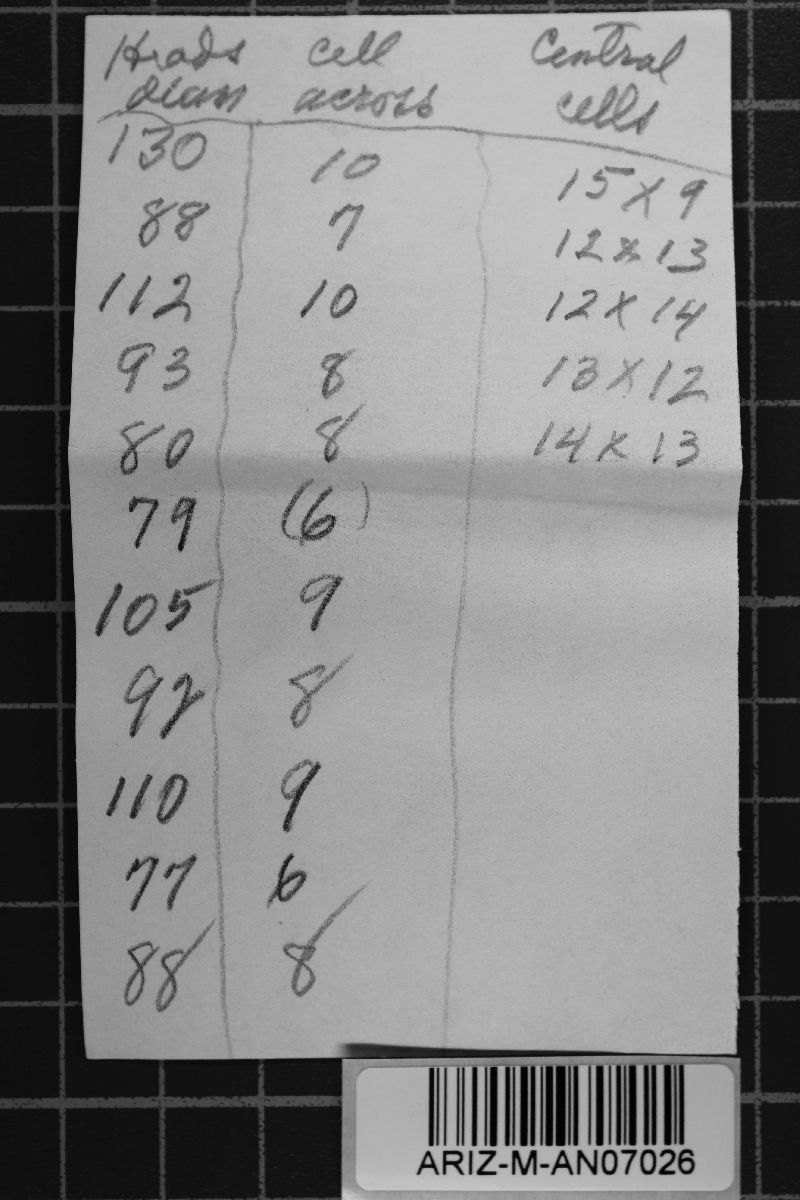 Heads cell Central
diam across cells
130 10 15 x 9
88 7 12 x 13
112 10 12 x 14
93 8 13 x 12
80 8 14 x 13
79 (6)
105 9
92 8
110 9
77 6
88 8
ARIZ-M-AN07026